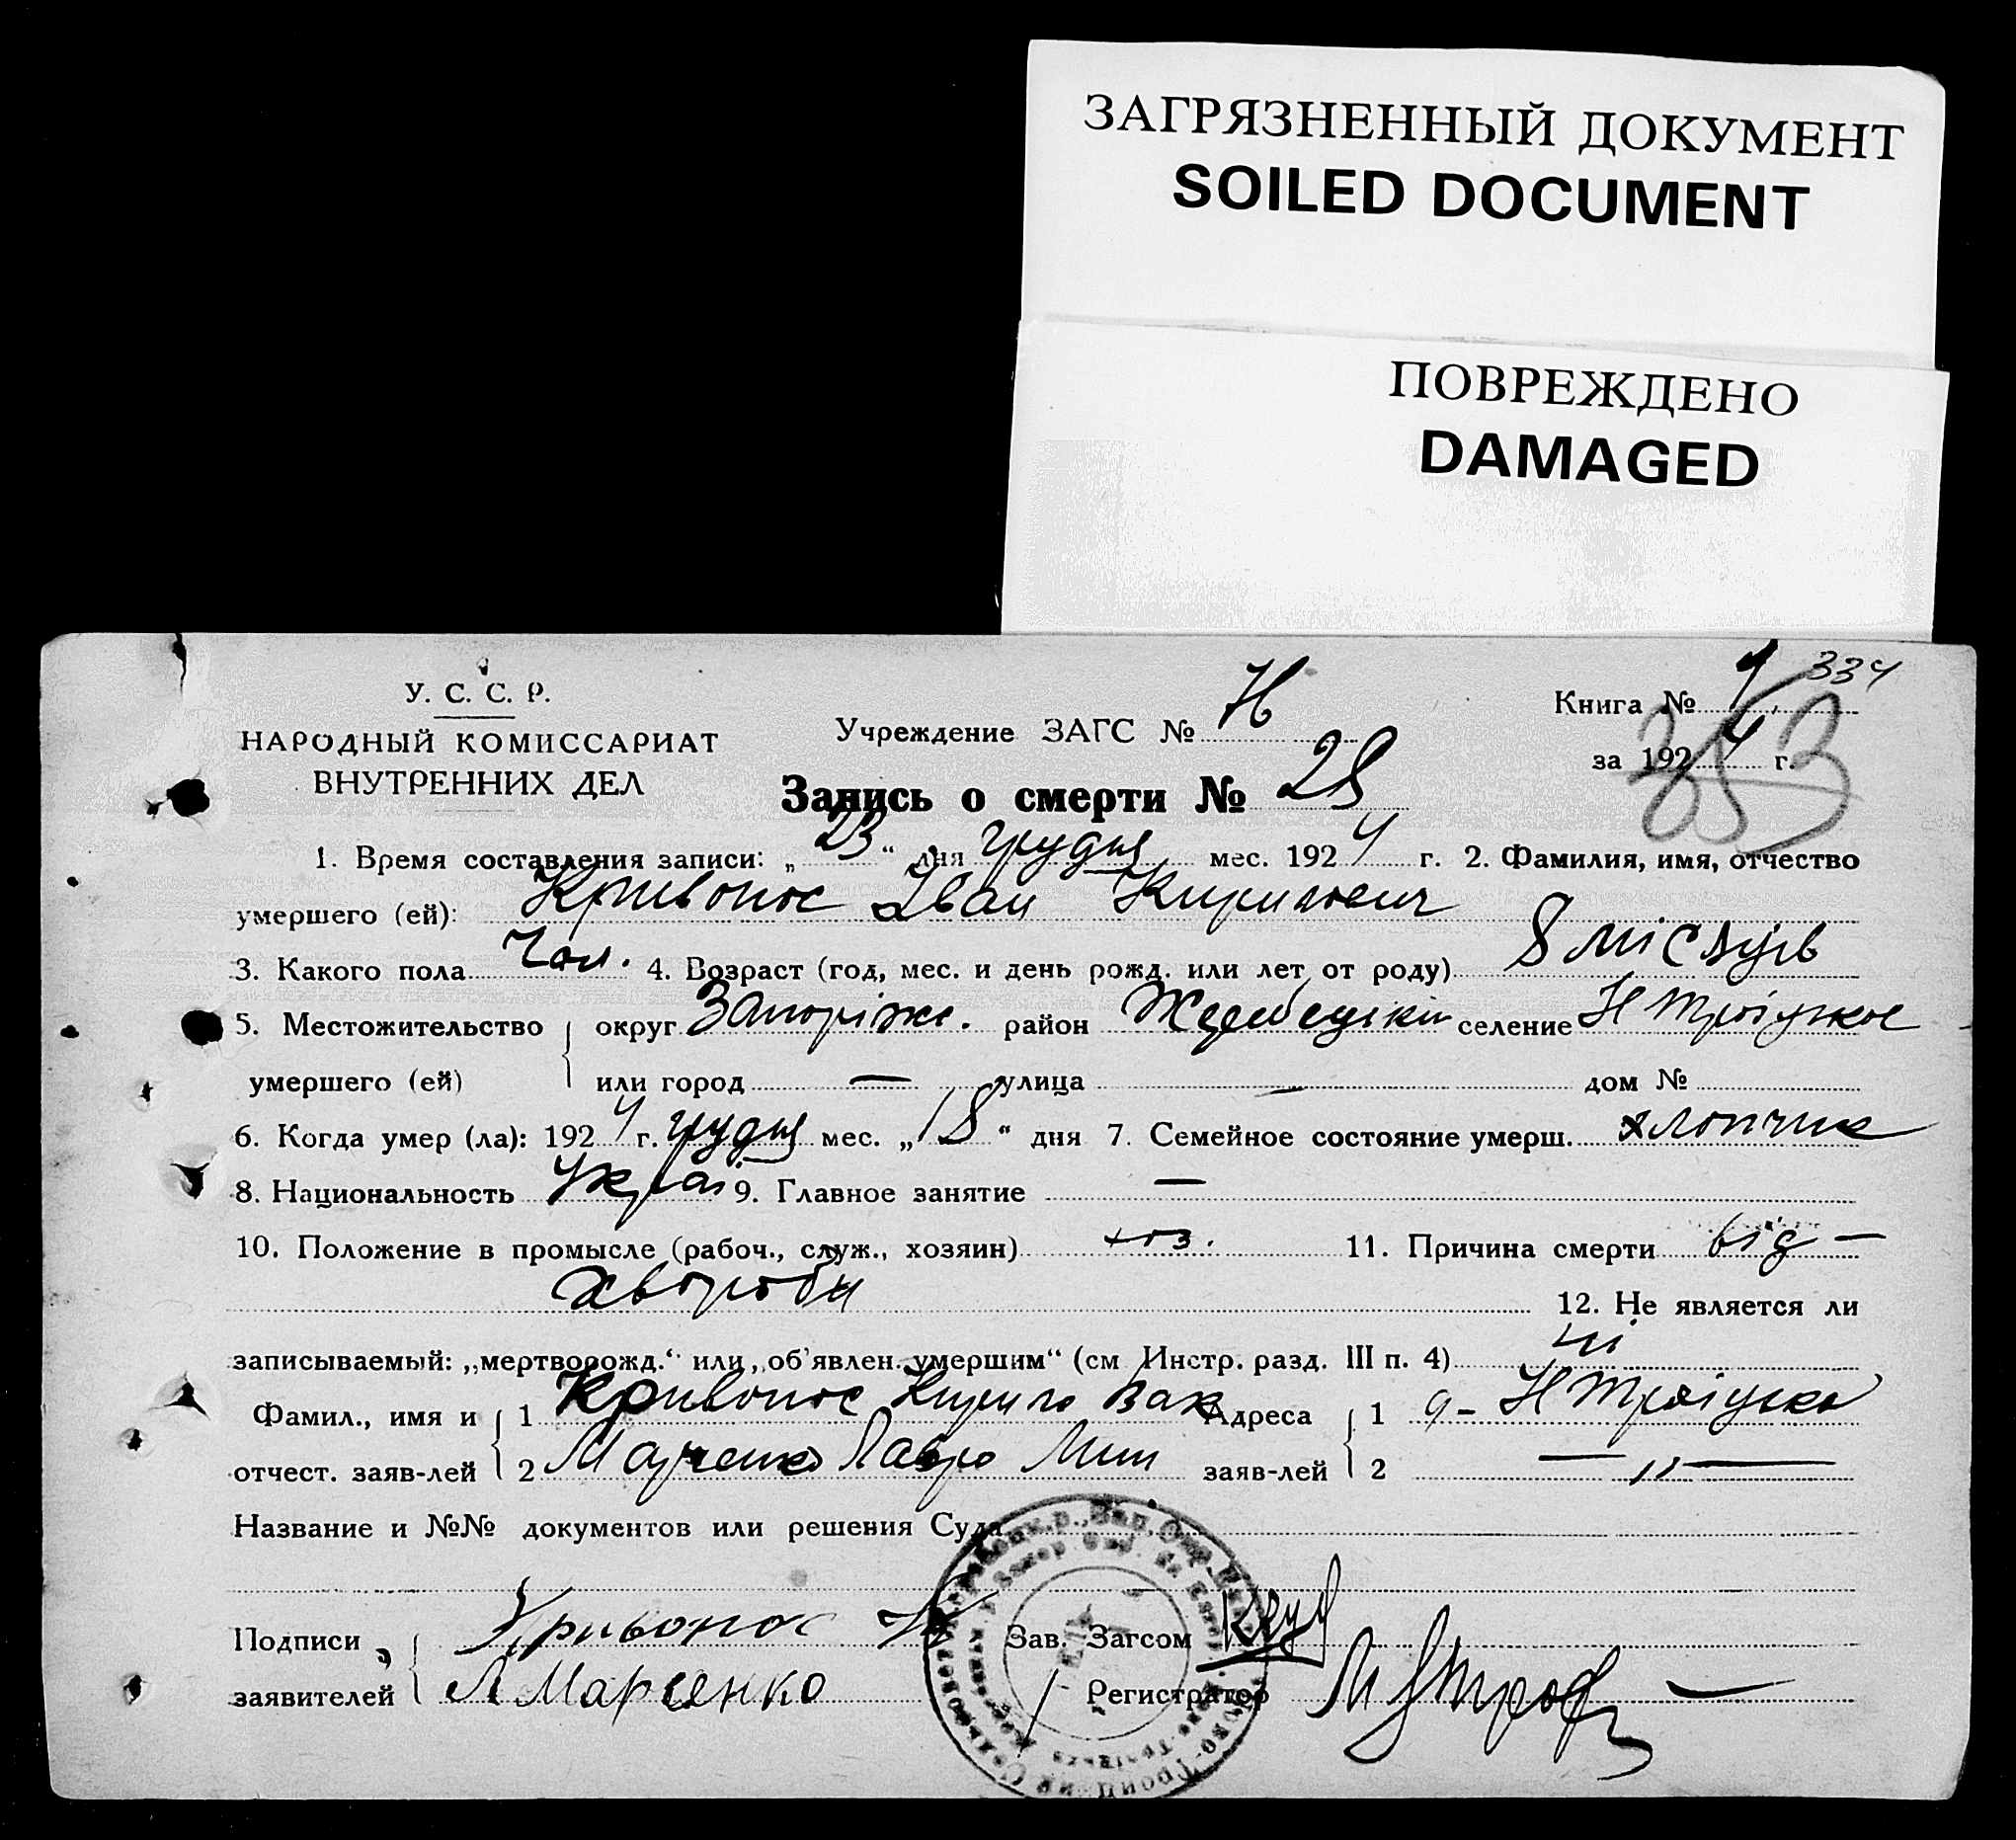 ЗАГРЯЗНЕННЫЙ ДОКУМЕНТ
SOILED DOCUMENT
ПОВРЕЖДЕНО
DAMAGED
334
У. С. С. Р.
НАРОДНЫЙ КОМИССАРИАТ
ВНУТРЕННИХ ДЕЛ
Учреждение ЗАГС № Н
Книга №
353
за 1924 г.
Запись о смерти № 28
1. Время составления записи: „23“ дня грудня мес. 1924 г. 2. Фамилия, имя, отчество
умершего (ей): Кривонос Іван Кирилович
3. Какого пола Чол. 4. Возраст (год, мес. и день рожд. или лет от роду) 8 місяців
5. Местожительство округ Запоріж. район Жеребецький селение Н Троіцкое
умершего (ей) или город — улица — дом №
6. Когда умер (ла): 1924 г. грудня мес. „18“ дня 7. Семейное состояние умерш. хлопчик
8. Национальность Украї 9. Главное занятие —
10. Положение в промысле (рабоч., служ., хозяин) хоз. 11. Причина смерти від —
хвороби 12. Не является ли
записываемый: „мертворожд.“ или „об’явлен. умершим“ (см Инстр. разд. III п. 4) ні
Фамил., имя и 1 Кривонос Кирило Вак Адреса 1 Н Троіцко
отчест. заяв-лей 2 Марченко Лавро Мин заяв-лей 2 — " —
Название и №№ документов или решения Суда
Подписи Кривонос К Зав. Загсом
заявителей Л Марченко Регистратор